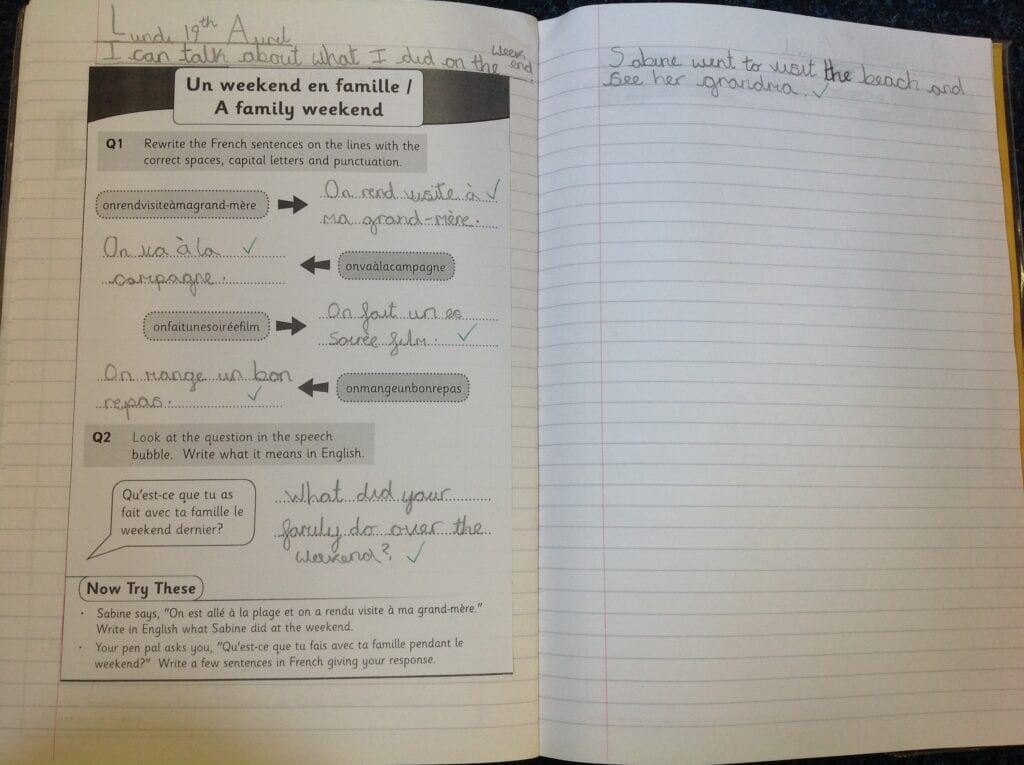 Lundi 19th Avril
I can talk about what I did on the week end.
Un weekend en famille /
A family weekend
Q1 Rewrite the French sentences on the lines with the
correct spaces, capital letters and punctuation.
onrendvisiteàmagrand-mère
On rend visite à
ma grand-mère.
On va à la
campagne.
onvaàlacampagne
onfaitunesoiréefilm
On fait un es
soirée film.
On mange un bon
repas.
onmangeunbonrepas
Q2 Look at the question in the speech
bubble. Write what it means in English.
Qu'est-ce que tu as
fait avec ta famille le
weekend dernier?
What did your
family do over the
weekend?
Now Try These
• Sabine says, "On est allé à la plage et on a rendu visite à ma grand-mère."
Write in English what Sabine did at the weekend.
• Your pen pal asks you, "Qu'est-ce que tu fais avec ta famille pendant le
weekend?" Write a few sentences in French giving your response.
Sabine went to visit the beach and
see her grandma.